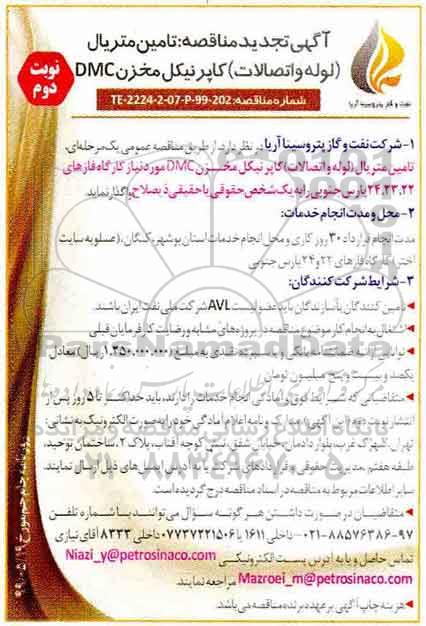 آگهی تجدید مناقصه: تامین متریال
(لوله و اتصالات) کاپر نیکل مخزن DMC
نوبت
دوم
نفت و گاز پتروسینا آریا
شماره مناقصه: TE-2224-2-07-P-99-202
۱- شرکت نفت و گاز پتروسینا آریا در نظر دارد، از طریق مناقصه عمومی یک مرحله‌ای،
تامین متریال (لوله و اتصالات) کاپر نیکل مخزن DMC مورد نیاز کارگاه فازهای
۲۴،۲۳،۲۲ پارس جنوبی را به یک شخص حقوقی یا حقیقی ذیصلاح واگذار نماید.
۲- محل و مدت انجام خدمات:
مدت انجام قرارداد ۳۰ روز کاری و محل انجام خدمات استان بوشهر، کنگان، (عسلویه سایت
اختر) کارگاه فازهای ۲۲ و ۲۴ پارس جنوبی
۳- شرایط شرکت کنندگان:
تامین کنندگان یا سازندگان باید عضو لیست AVL شرکت ملی نفت ایران باشند.
اشتغال به انجام کار موضوع مناقصه در پروژه‌های مشابه و رضایت کارفرمایان قبلی
توانایی ارائه ضمانتنامه بانکی و یا سپرده نقدی به مبلغ (۱.۲۵۰.۰۰۰.۰۰۰ ریال) معادل
یکصد و بیست و پنج میلیون تومان
متقاضیانی که شرایط فوق و آمادگی انجام خدمات را دارند، باید حداکثر تا ۵ روز پس از
انتشار نوبت دوم این آگهی، مدارک و نامه اعلام آمادگی خود را به صورت الکترونیک به نشانی:
تهران، شهرک غرب، بلوار دادمان، خیابان شفق، نبش کوچه آفتاب، پلاک ۲، ساختمان توحید،
طبقه هفتم، مدیریت حقوقی و قراردادهای شرکت یا به آدرس ایمیل‌های ذیل ارسال نمایند.
سایر اطلاعات مربوط به مناقصه در اسناد مناقصه درج گردیده است.
متقاضیان در صورت داشتن هر گونه سؤال می‌توانند با شماره تلفن
۰۲۱-۸۸۵۷۶۳۸۶-۹۷ داخلی ۱۶۱۱ یا ۰۷۷۳۷۲۲۱۵۰۶ داخلی ۸۳۳۳ آقای نیازی
تماس حاصل و یا به آدرس پست الکترونیکی Niazi_y@petrosinaco.com
Mazroei_m@petrosinaco.com مراجعه نمایند.
هزینه چاپ آگهی بر عهده برنده مناقصه می‌باشد.